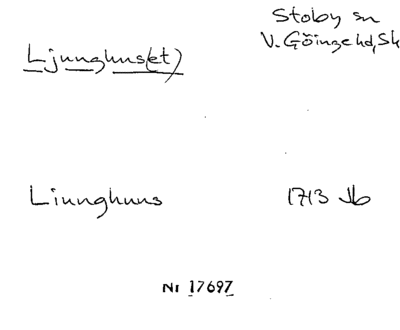 Stoby sn
V. Göinge hd, Sk
Ljunghus(et)
Liunghuus 1713 Jb
Nr 17697